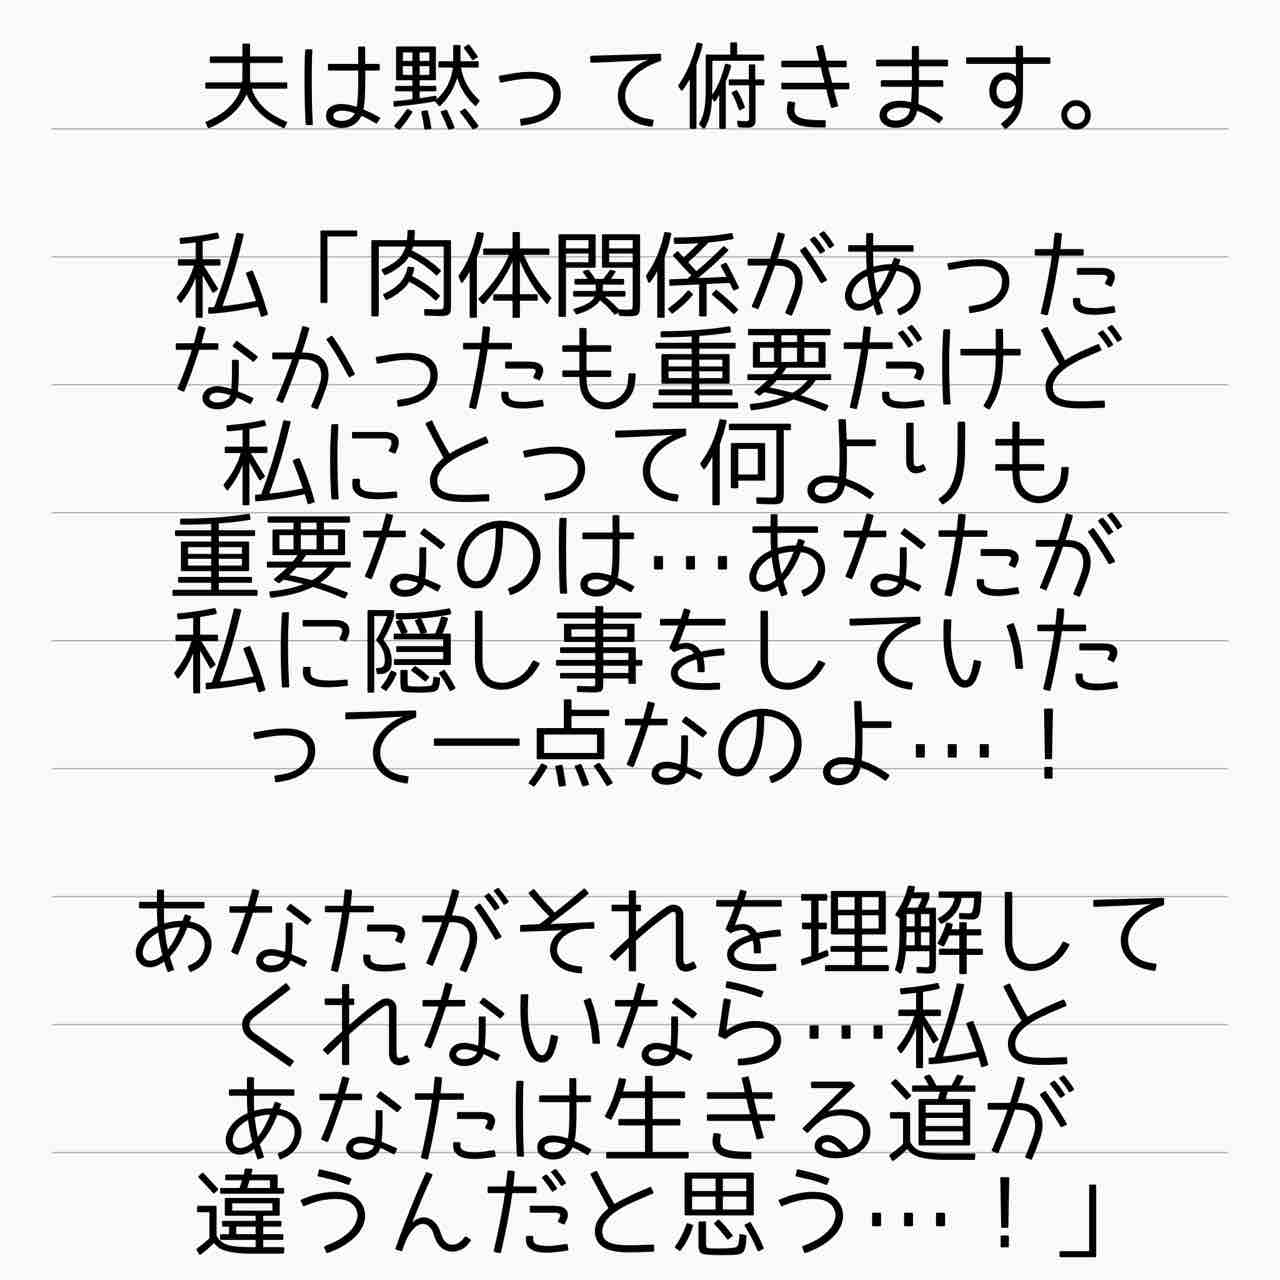 夫は黙って俯きます。
私「肉体関係があった
なかったも重要だけど
私にとって何よりも
重要なのは…あなたが
私に隠し事をしていた
って一点なのよ…！
あなたがそれを理解して
くれないなら…私と
あなたは生きる道が
違うんだと思う…！」